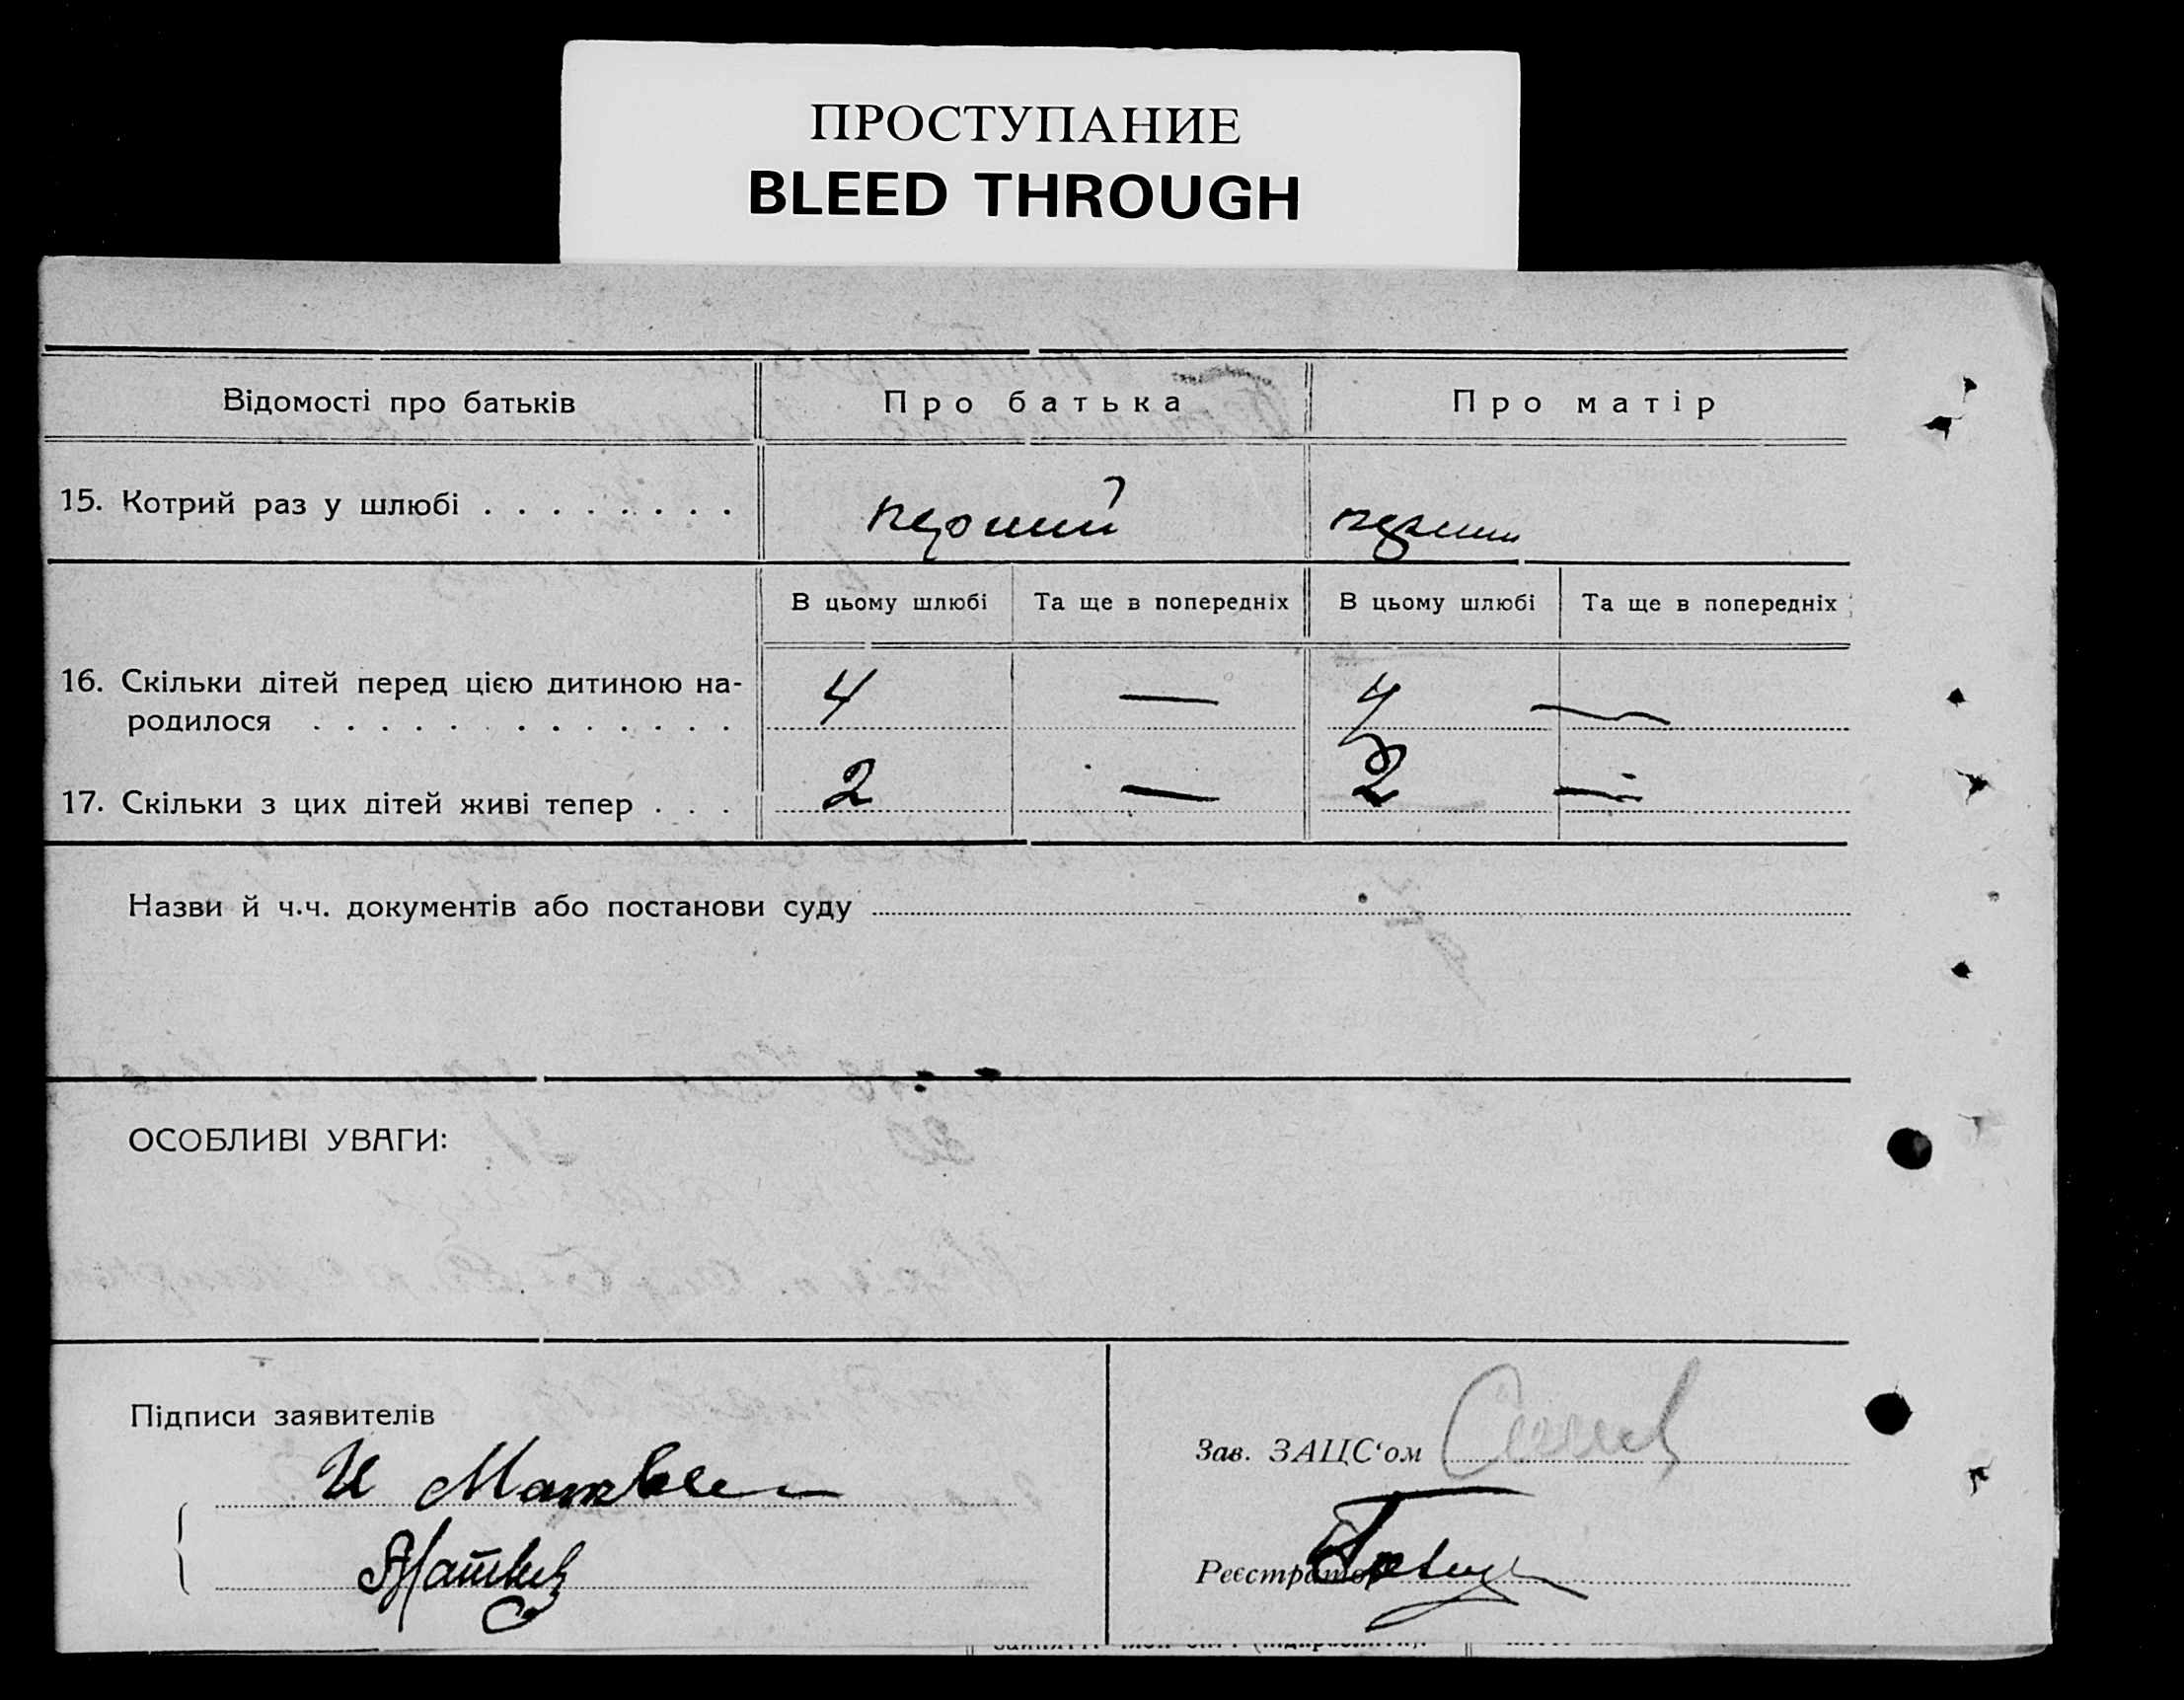 ПРОСТУПАНИЕ
BLEED THROUGH
Відомості про батьків Про батька Про матір
15. Котрий раз у шлюбі . . . . . . . . перший перший
В цьому шлюбі Та ще в попередніх В цьому шлюбі Та ще в попередніх
16. Скільки дітей перед цією дитиною на- 4 — 4 —
родилося . . . . . . . . . . . . .
17. Скільки з цих дітей живі тепер . . . 2 — 2 —
Назви й ч.ч. документів або постанови суду
ОСОБЛИВІ УВАГИ:
Підписи заявителів
Зав. ЗАЦС‘ом
И
Реєстратор